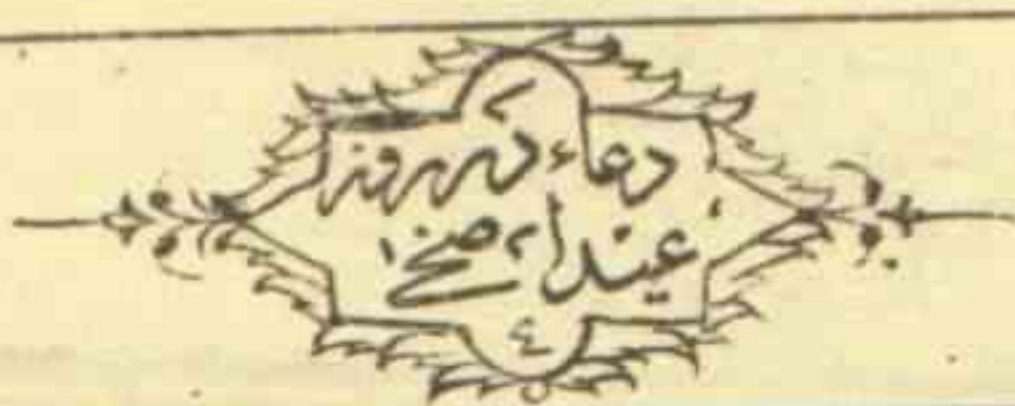 دعاء در روز
عید اضحی
٤